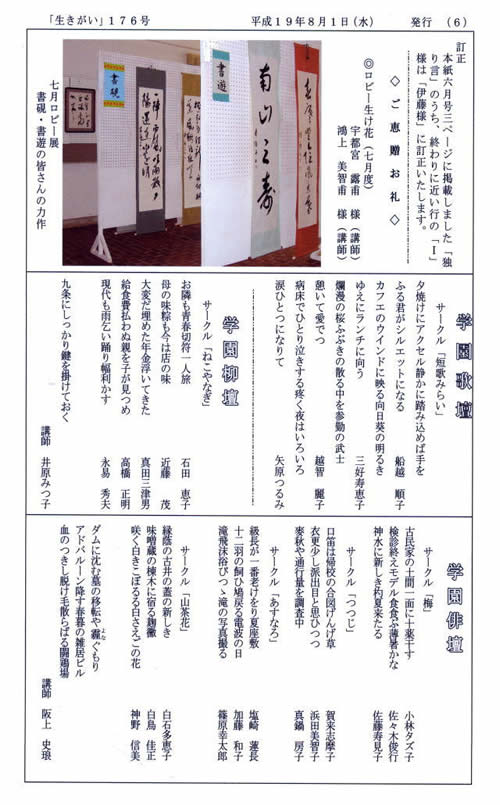 「生きがい」１７６号
平成１９年８月１日（水）
発行（６）
訂正
本紙六月号三ページに掲載しました「独
り言」のうち、終わりに近い行の「Ｉ
様は「伊藤様」に訂正いたします。
◇ ご恵贈お礼 ◇
◎ロビー生け花（七月度）
宇都宮 露甫 様（講師）
鴻上 美智甫 様（講師）
書遊
南山之寿
書硯
七月ロビー展
書硯・書遊の皆さんの力作
学園歌壇
サークル「短歌みらい」
夕焼けにアクセル静かに踏み込めば手を
ふる君がシルエットになる 船越 順子
カフエのウインドに映る向日葵の明るき
ゆえにランチに向う 三好寿恵子
爛漫の桜ふぶきの散る中を参勤の武士
憩いて愛でつ 越智 麗子
病床でひとり泣きする疼く夜はいろいろ
涙ひとつになりて 矢原つるみ
学園柳壇
サークル「ねこやなぎ」
お隣も青春切符一人旅 石田 恵子
母の味粽も今は店の味 近藤 茂
大変だ埋めた年金浮いてきた 真田三津男
給食費払わぬ親を子が見つめ 高橋 正明
現代も雨乞い踊り幅利かす 永易 秀夫
九条にしっかり鍵を掛けておく
講師 井原みつ子
学園俳壇
サークル「梅」
古民家の土間一面に十薬干す 小林タズ子
検診終えモデル食食ぶ薄暑かな 佐々木俊行
神水に新しき杓夏来たる 佐藤寿見子
サークル「つつじ」
口笛は帰校の合図げんげ草 賀来志摩子
衣更少し派出目と思ひつつ 浜田美智子
麦秋や通行量を調査中 真鍋 房子
サークル「あすなろ」
級長が一番老けをり夏座敷 塩崎 蓮長
十二羽の飼ひ鳩戻る電波の日 加藤 和子
滝飛沫浴びつゝ滝の写真撮る 篠原幸太郎
サークル「山茶花」
緑蔭の古井の蓋の新しき 白石多恵子
味噌蔵の棟木に宿る麹黴 白鳥 佳正
咲く白きこぼるる白さえごの花 神野 信美
ダムに沈む墓の移転や霾ぐもり
よな
アドバルーン降す春暮の雑居ビル
血のつきし脱け毛散らばる闘鶏場
講師 阪上 史琅